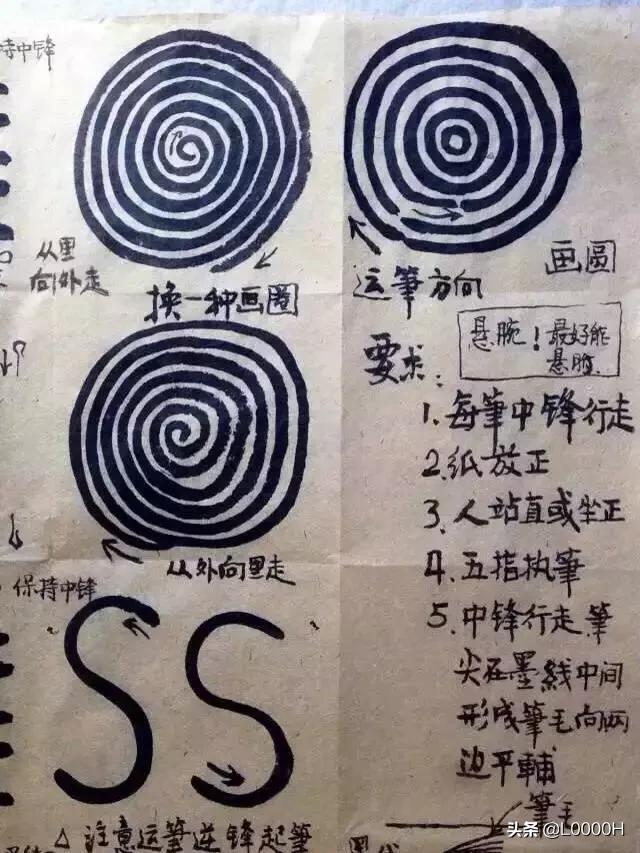 持中锋
从里
向外走
换一种画圈
运筆方向
画圓
悬腕！最好能
悬肘
要求：
1. 每筆中锋行走
2. 纸放正
3. 人站直或坐正
4. 五指执筆
5. 中锋行走筆
尖在墨线中间
形成筆毛向两
边平輔
筆毛
从外向里走
保持中锋
SS
△注意运筆逆锋起筆
头条 @L0000H